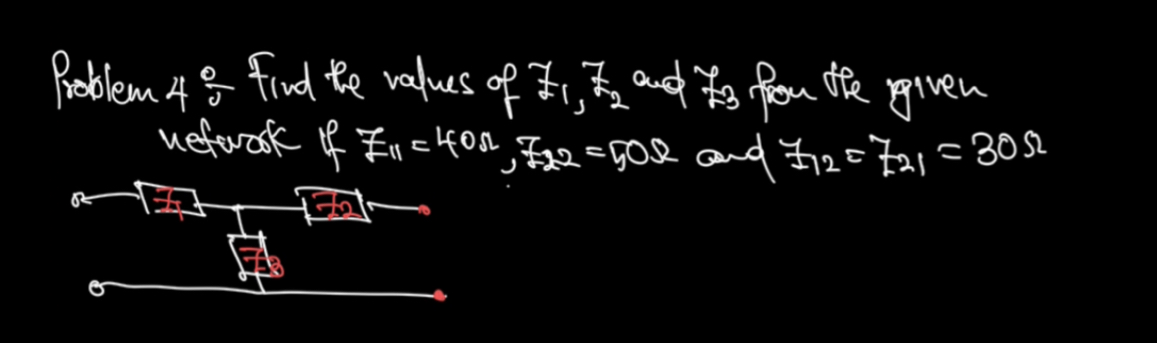 Problem 4 : Find the values of Z1, Z2 and Z3 from the given
network if Z11 = 40Ω, Z22 = 50Ω and Z12 = Z21 = 30Ω
Z1 Z2
Z3